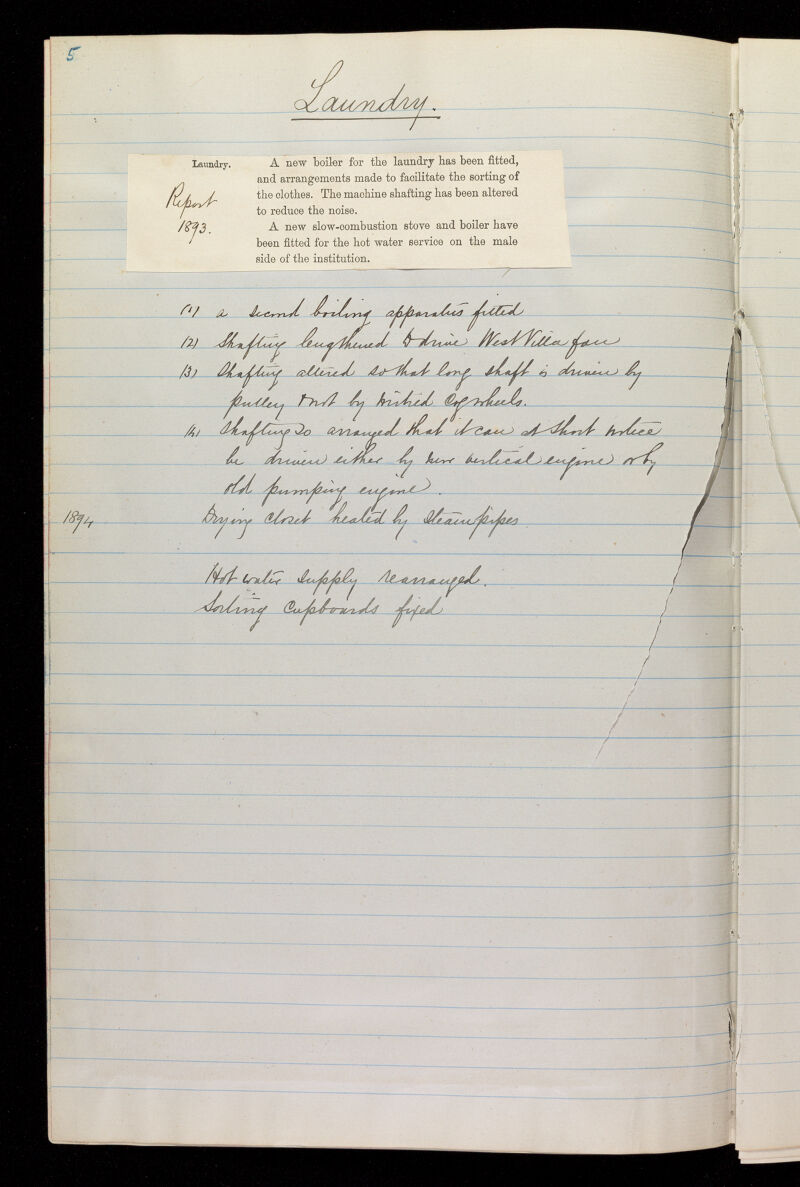 5
Laundry.
Laundry.
Report
1893.
A new boiler for the laundry has been fitted,
and arrangements made to facilitate the sorting of
the clothes. The machine shafting has been altered
to reduce the noise.
A new slow-combustion stove and boiler have
been fitted for the hot water service on the male
side of the institution.
(1) a second boiling apparatus fitted
(2) Shafting lengthened to drive West Villa fan
(3) Shafting altered so that long shaft is driven by
pulley & not by mitred cogwheels.
(4) Shafting so arranged that it can at short notice
be driven either by new vertical engine or by
old pumping engine.
1894 Drying closet heated by steam pipes
Hot water supply rearranged.
Sorting Cupboards fixed